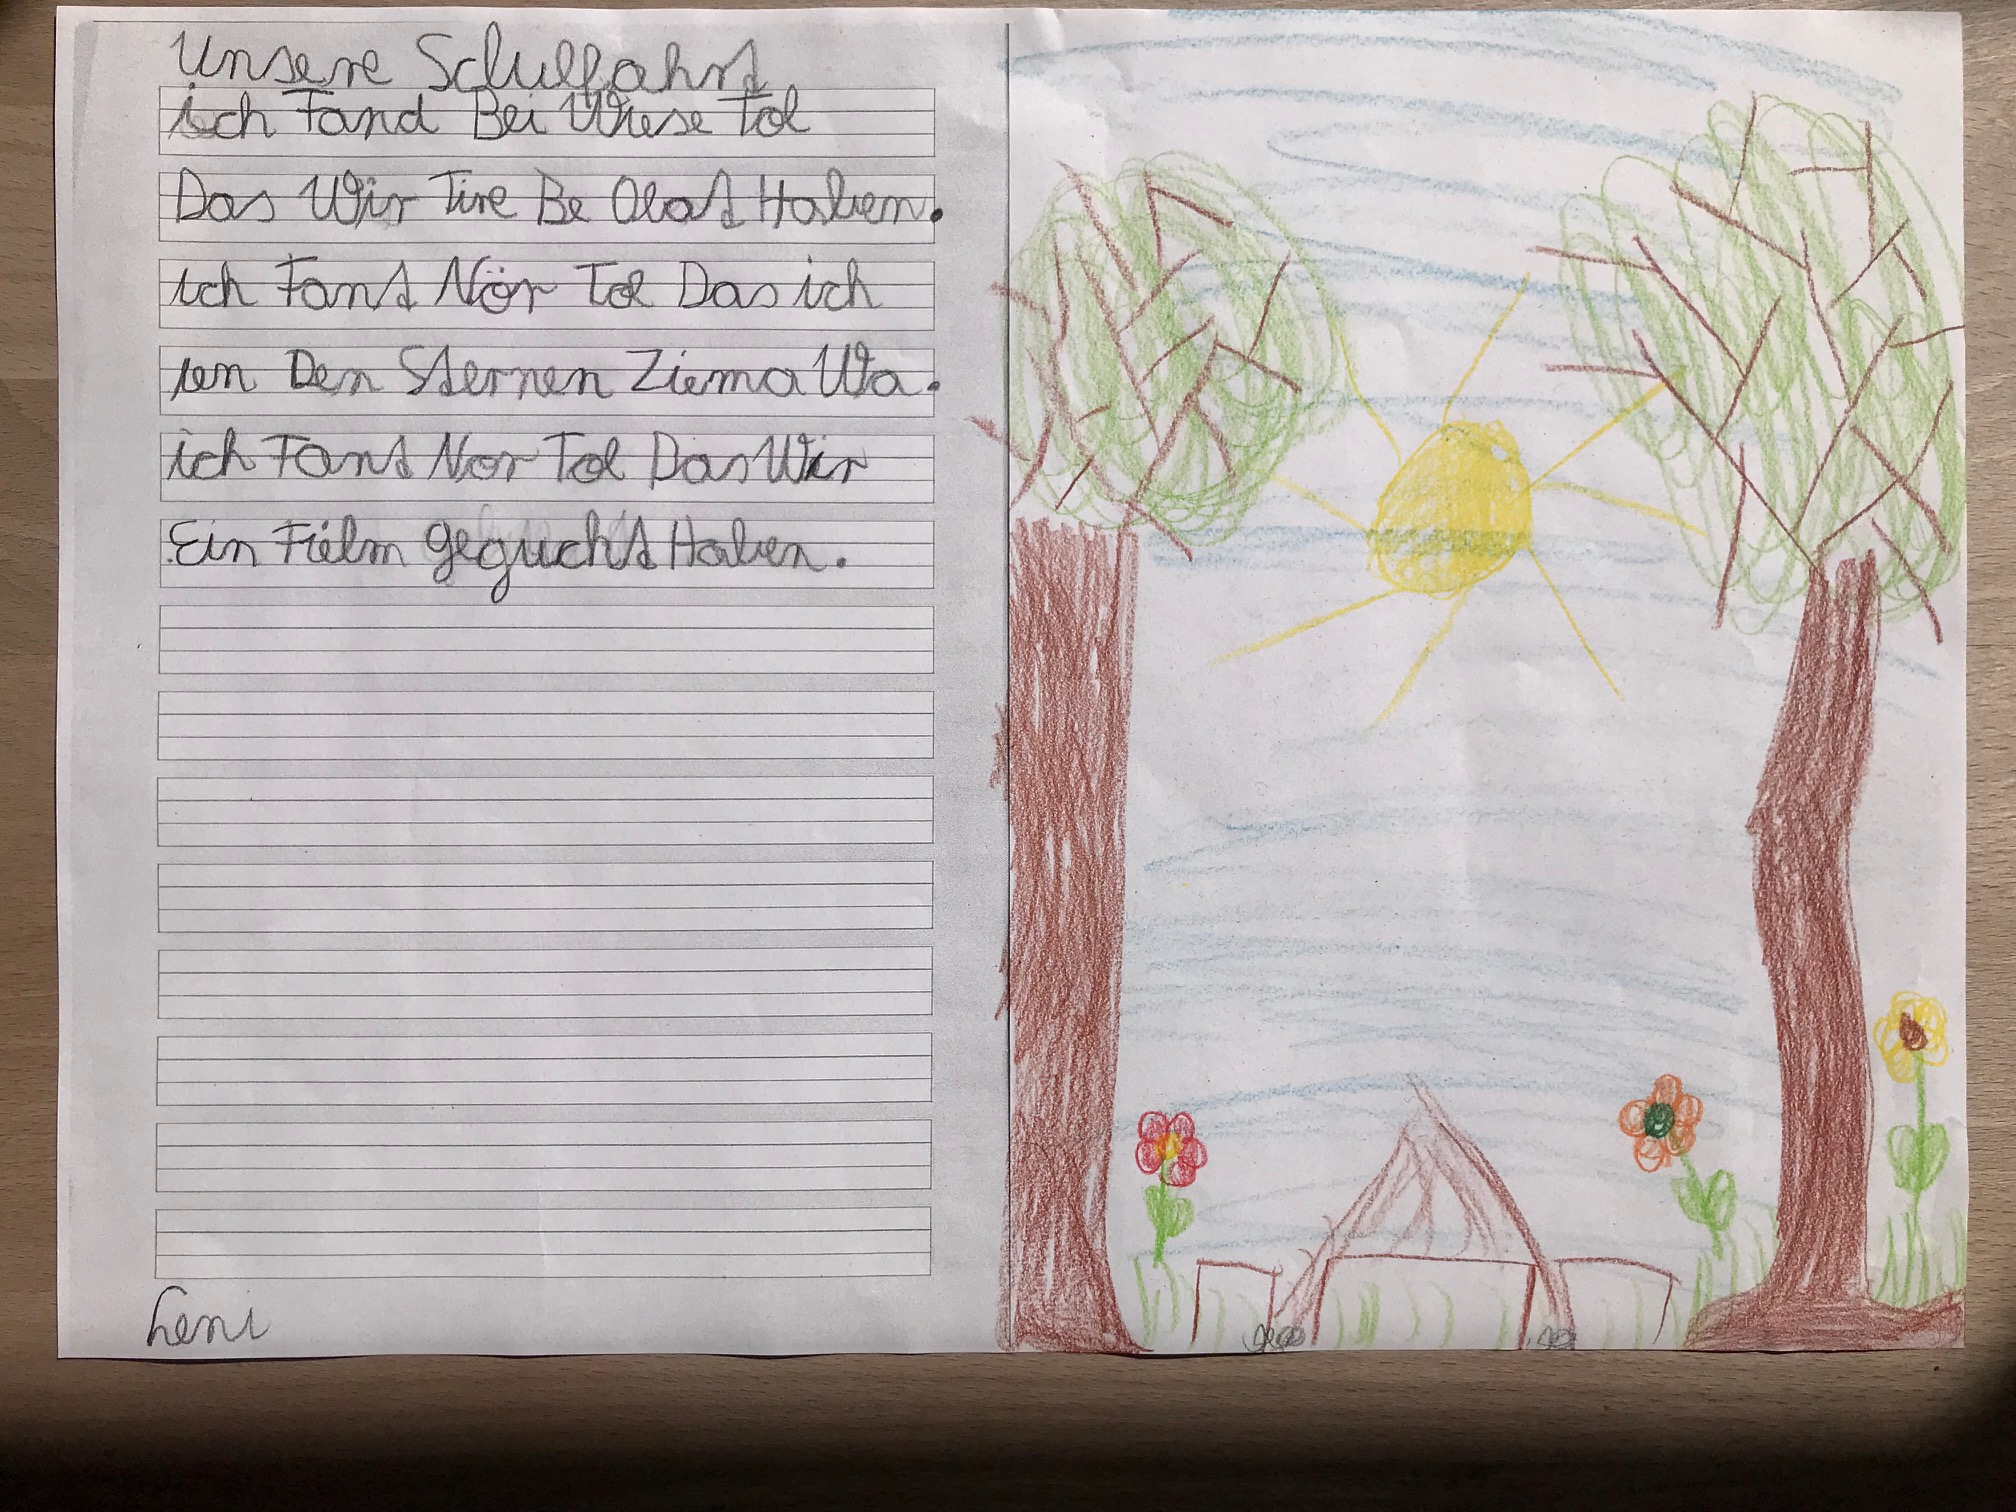 Unsere Schulfahrt
ich Fand Bei Wiese Tol
Das Wir Tire Be Obat Haben.
ich Fant Nör Tol Das ich
in Den Sternen Ziema Wa.
ich Fant Nor Tol Das Wir
Ein Fielm geguckt Haben.
Leni